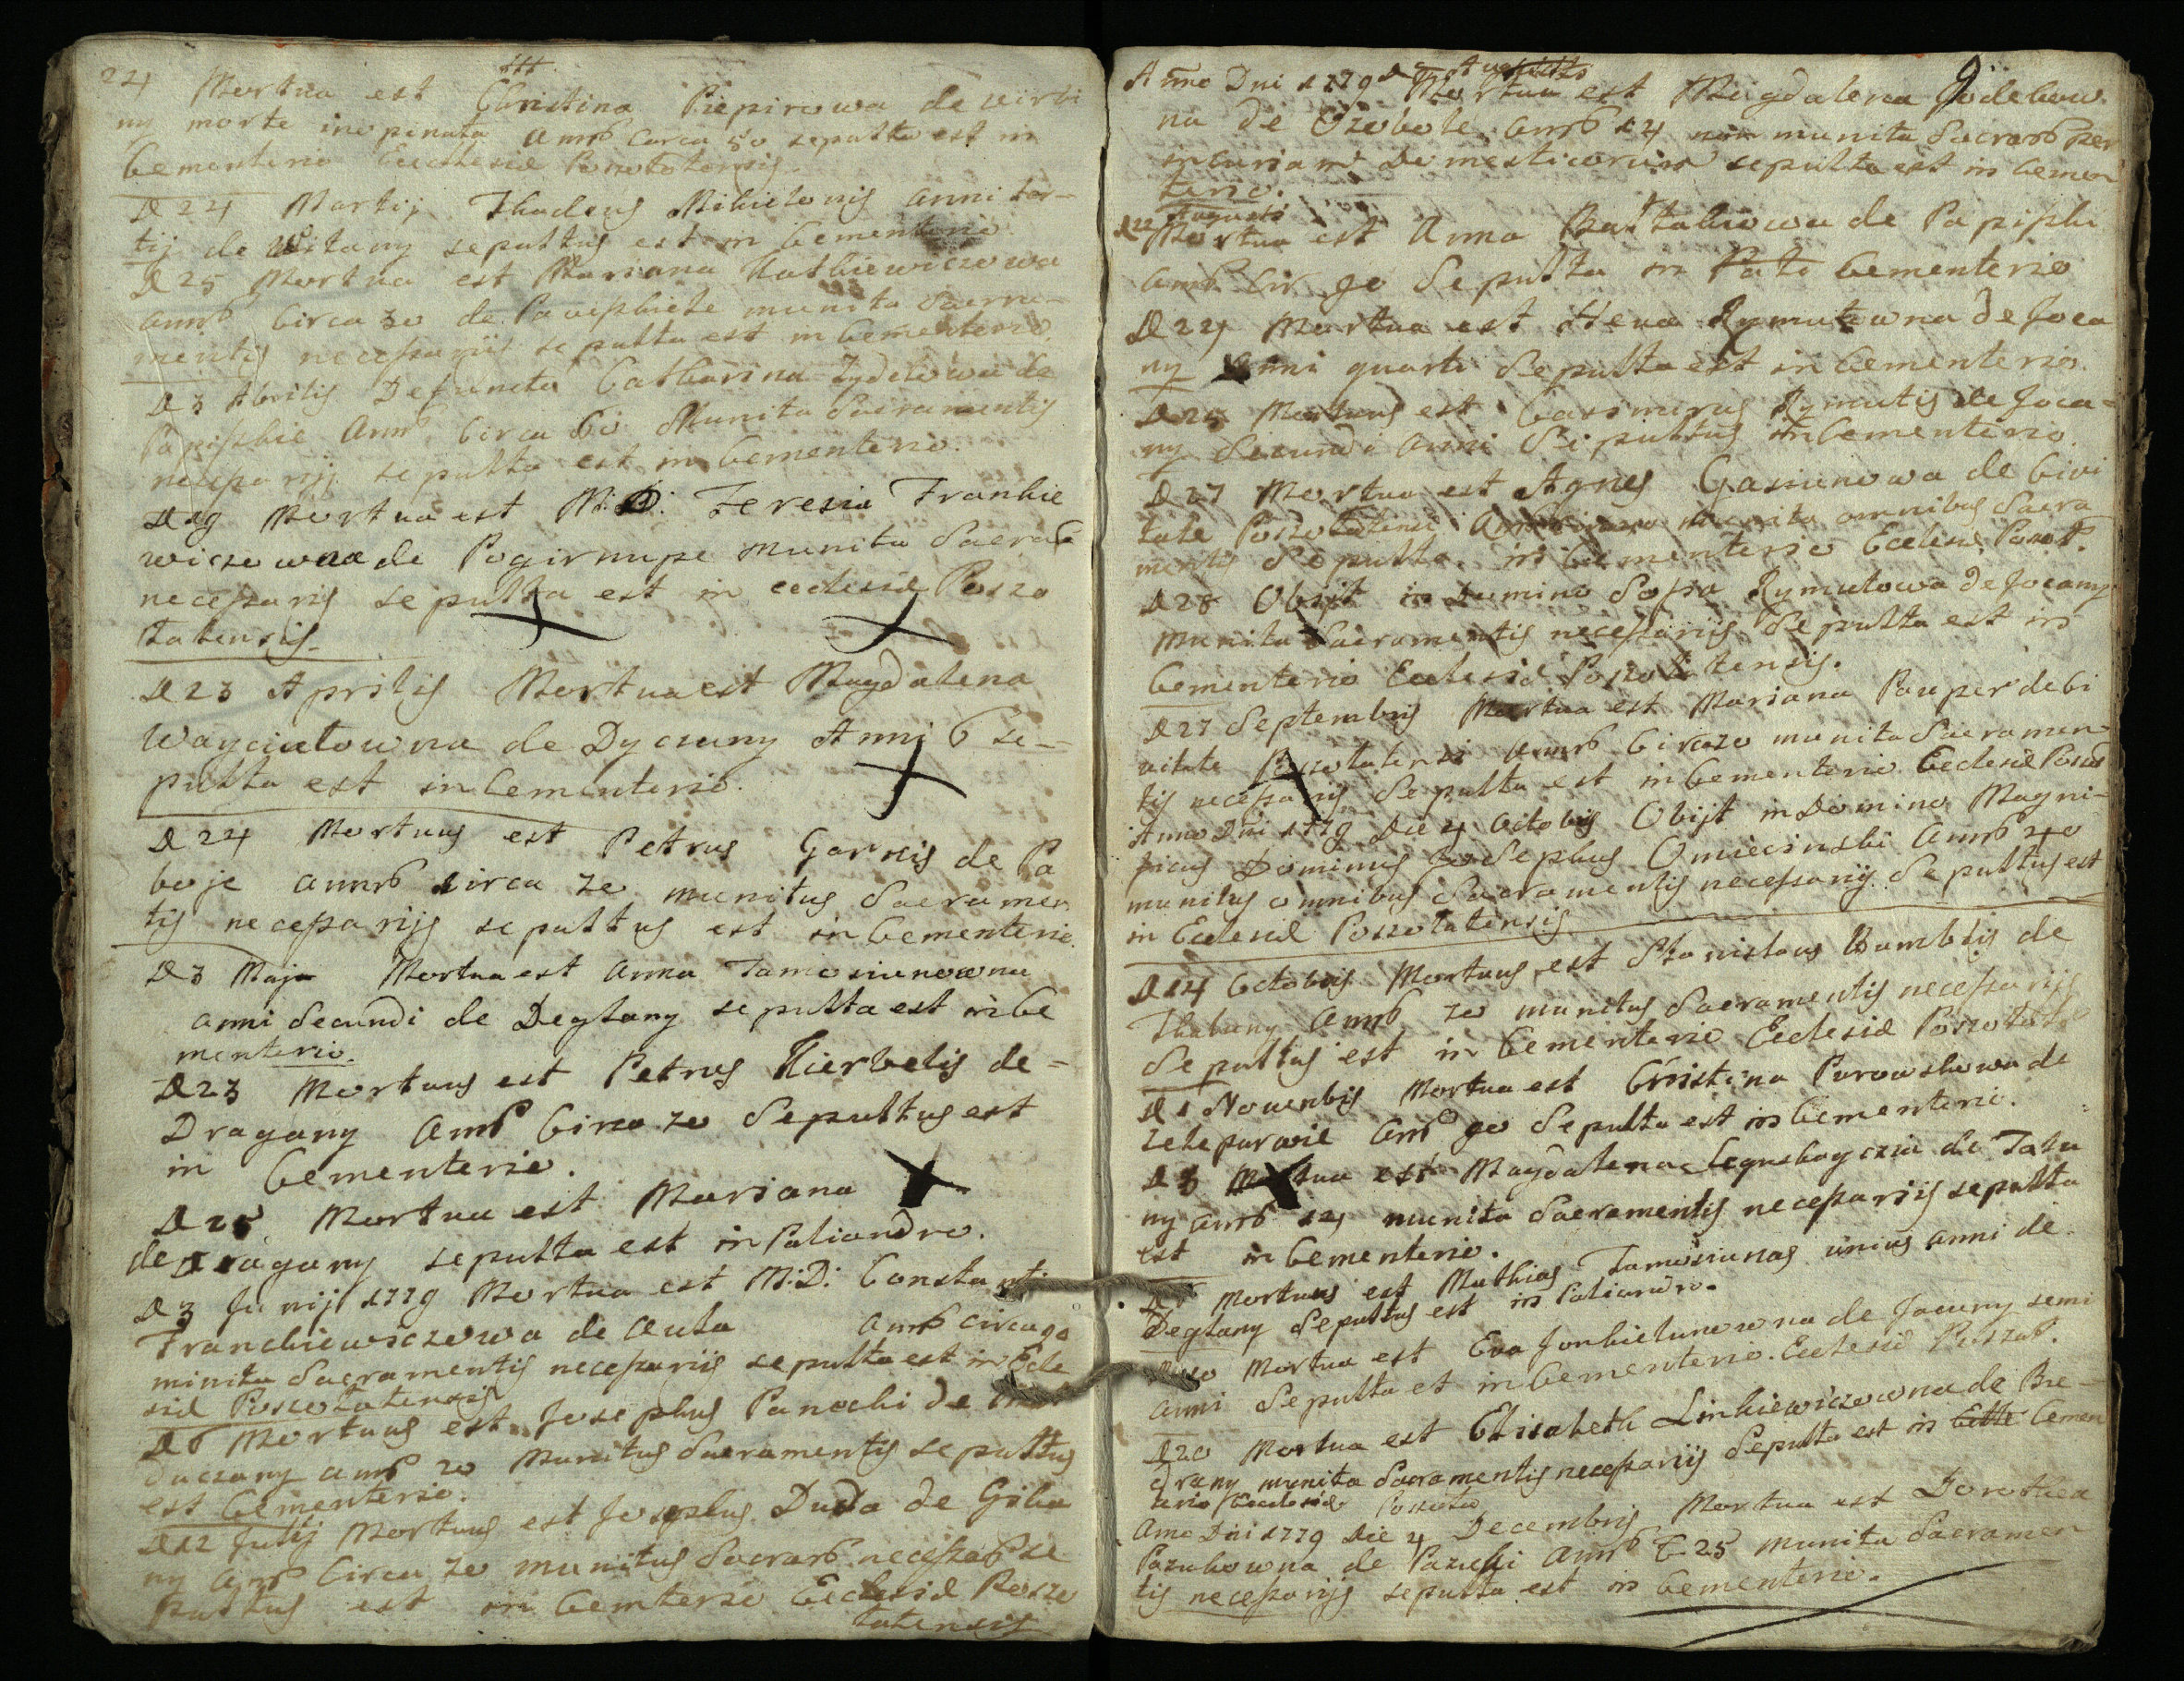 24 Mortua est Christina Piepirowa de wirbi
ny morte inopinata annō Circa 50 sepulta est in
Cementerio Ecclesiæ
D 24 Martij Thadeus Mikielonis anni ter-
tij de Witany sepultus est in Cementerio
D 25 Mortua est Mariana Katkiewiczowa
annō Circa 30 de munita Sacra-
mentis necessarijs sepulta est in Cementerio
D 3 Abrilis Defuncta Catharina Zydelowa de
Papiszkie annō Circa 60 Munita Sacramentis
necessarijs sepulta est in Cementerio.
D 19 Mortua est M: D: Teresia Frankie
wiczowna de Pogirnupe munita Sacrat
necessaris sepulta est in ecclesiæ Poszo
latensis
D 23 Aprilis Mortua est Magdalena
Wayciulowna de Dyczuny Anni 6 se-
pulta est in Cementerio.
D 24 Mortuus est Petrus Garnis de Pa
boje annō Circa 70 munitus Sacramen
tis necessarijs sepultus est in Cementerio.
D 3 Maja Mortua est Anna Tamosiunowna
anni Secundi de Deglany sepulta est in Ce
menterio.
D 23 Mortuus est Petrus Kierbelis de-
Dragany annō Circa 70 Sepultus est
in Cementerio.
D 25 Mortua est Mariana
de Dragany sepulta est in Poliandro.
D 3 Junij 1779 Mortua est M: D: Constanti
Franckiewiczowa de aula annō circa 90
minita Sacramentis necessariis sepulta est in Ecle
siæ Poszolatensis
D 6 Mortuus est Josephus Panocki de
duczany annō 20 Munitus Sacramentis Sepultus
est Cementerio.
D 12 Julij Mortuus est Josephus Duda de Gilu
ny annō Circa 70 munitus Sacrarō necessarō se
pultus est in Cemterio Ecclesiæ Poszo
latensis
Anno Dni 1779 Augusti 9
Mortua est Magdalena Godelow
na de annō 14 non munita Sacrarō per
incuriam Domesticorum sepulta est in Cemen
terio.
D 22 Augusti
Mortua est Anna de Papiszki
annō Cir 90 Sepulta in Cementerio
D 24 Mortua est Heva Rymutowna de Joca
ny Anni quarti Sepulta est in Cementerio.
D 25 Mortuus est Casimirus Rymutis de Joca-
ny Secundi anni Sepultus in Cementerio.
D 27 Mortua est Agnes Gasiunowa de Civi
tate munita omnibus Sacra
mentis Sepulta in Cementerio Ecclesiæ Poszol.
D 28 Obijt in Domino Sofia Rymutowa de Jocany
munita Sacramentis necessariis Sepulta est in
Cementerio Ecclesiæ Poszolatensis.
D 27 Septembris Mortua est Mariana Pauper de Ci
vitate Poszolatensi annō Circa 70 munita Sacramen
tis necessarijs Sepulta est in Cementerio Ecclesiæ Poszol
Anno Dni 1779 Die 4 Octobris Obijt in Domino Magni-
ficus Dominus Josephus Omiecinski annō 40
munitus omnibus Sacramentis necessarijs Sepultus est
in Eclesiæ Poszolatensis
D 14 Octobris Mortuus est Stanislaus Bumblis de
annō 70 munitus Sacramentis necessarijs
Sepultus est in Cementerio Ecclesiæ
D 1 Novenbris Mortua est Cristina Purowskowa de
annō 90 Sepulta est in Cementerio.
D 3 Mortua est Magdalena de
ny annō 14 munita Sacramentis necessarijs sepulta
est in Cementerio.
Mortuus est Mathias Tamosiunas unius anni de
Deglany Sepultus est in Poliandro.
Mortua est Eva Jonkielunowna de Jocuny semi
anni Sepulta et in Cementerio. Eclesiæ
D 20 Mortua est Elisabeth Linkiewiczowna de Bie-
drany munita Sacramentis necessarijs Sepulta est in Cemen
terio Ecclesiæ
Anno Dni 1779 Die 4 Decembris Mortua est Dorothea
Pazukowna de Pazuki annō C 25 munita Sacramen
tis necessarijs sepulta est in Cementerio.